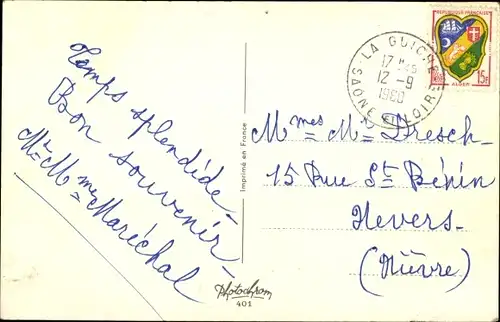 Temps splendide-
Bon souvenir-
Mr Mme Maréchal
Imprimé en France
Photochrom
401
LA GUICHE
17 H
12 - 9
1960
SAONE ET LOIRE
REPUBLIQUE FRANÇAISE
15F
ALGER
Mmes M= Dresch-
15 Rue St Bénin
Nevers-
(Nièvre)